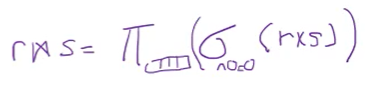 r⋈s = Π (σ (r×s))